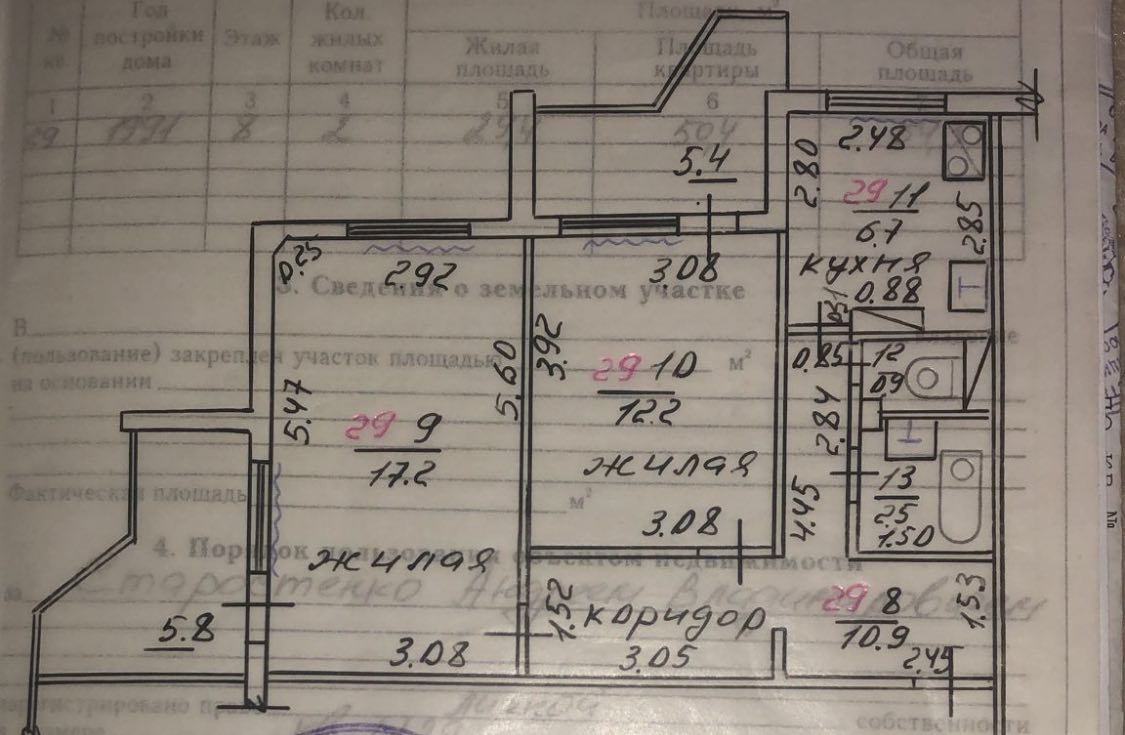 № кв.
Год постройки дома
Этаж
Кол. жилых комнат
Площадь, м²
Жилая площадь
Площадь квартиры
Общая площадь
1 2 3 4 5 6
1991 8 2
5.4
2.48
2.80
29 11
6.7
2.85
кухня
0.88
0.25
2.92
3.08
3. Сведения о земельном участке
В
(пользование) закреплен участок площадью м²
на основании
5.47
5.60
3.92
29 10
12.2
0.85
12
0.9
2.84
29 9
17.2
жилая
13
2.5
1.50
4.45
Фактическая площадь м²
3.08
4. Порядок пользования объектом недвижимости
жилая
за
1.52
коридор
29 8
10.9
1.53
5.8
3.08
3.05
2.45
собственности